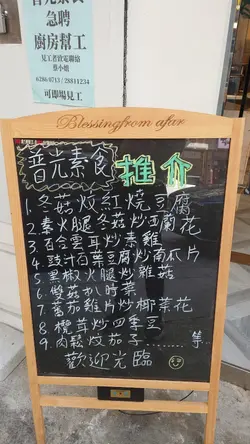 普元素食
急聘
廚房幫工
見工者致電聯絡
蔡小姐
6286 0713 / 28811234
可即場見工
Blessing from afar
普元素食 推介
1. 冬菇炆紅燒豆腐
2. 素火腿冬菇炒西蘭花
3. 百合雲耳炒素雞
4. 豉汁百葉豆腐炒南瓜片
5. 黑椒火腿炒雜菇
6. 雙菇扒時菜
7. 蕃茄雞片炒椰菜花
8. 欖茸炒四季豆
9. 肉鬆炆茄子............等.
歡迎光臨